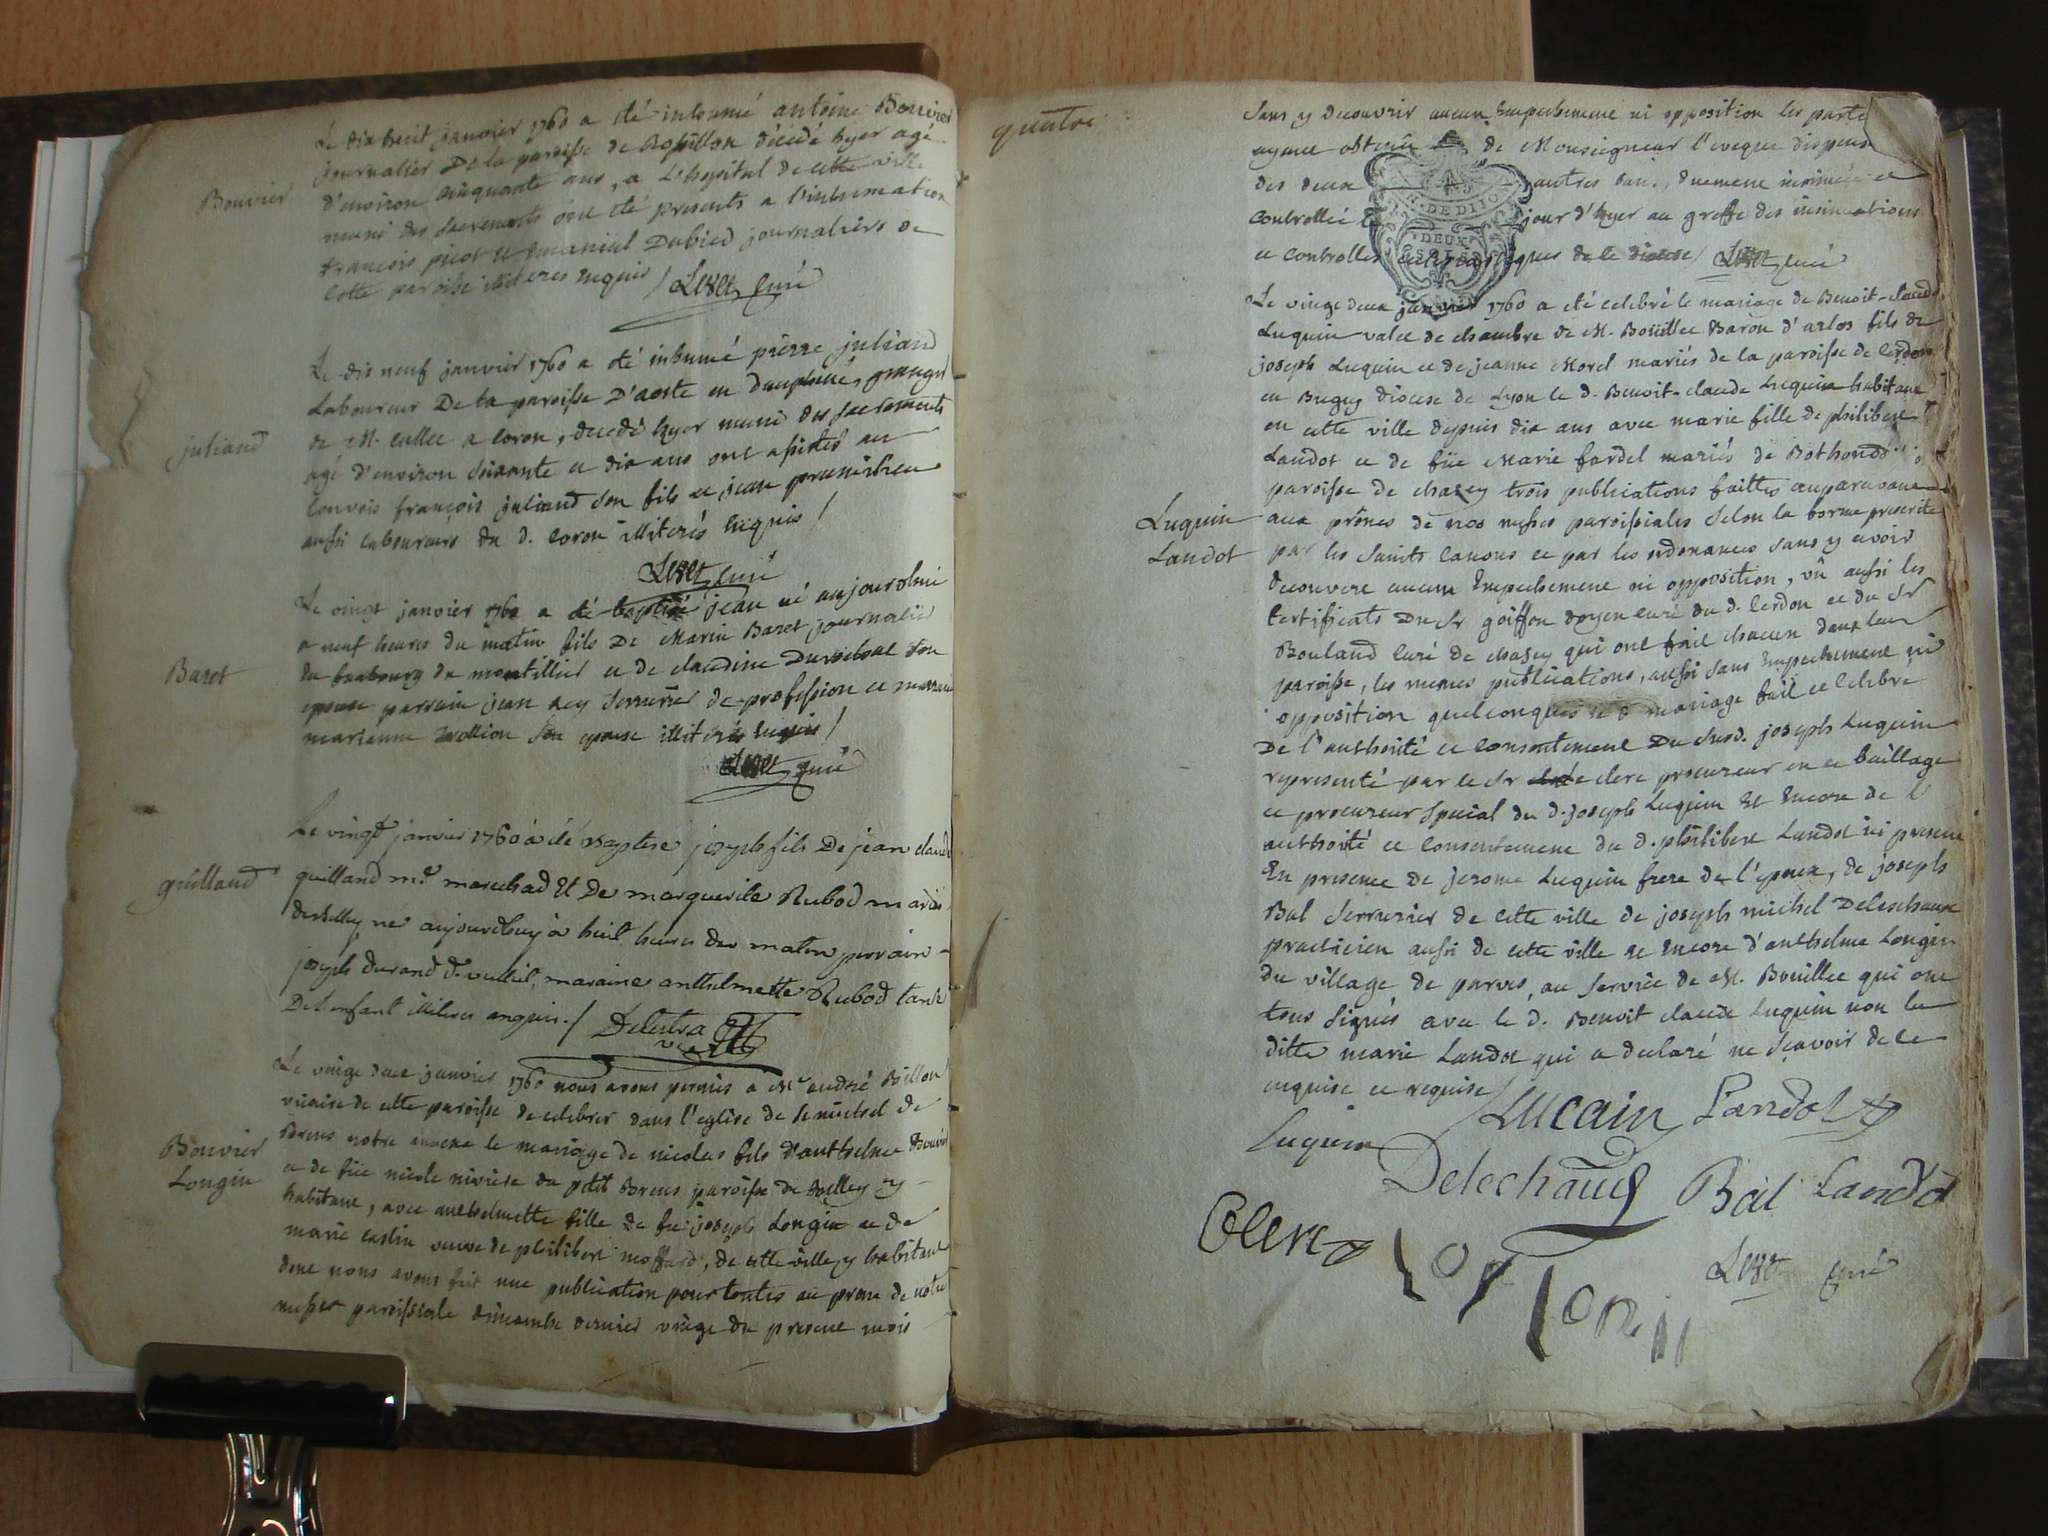 Le dix huit janvier 1760 a été inhumé antoine Bouvier
journalier De la paroisse de décédé hyer agé
Bouvier
d'environ cinquante ans, a L'hopital de cette ville
muni des Sacrements ont été presents a l'inhumation
françois picot et emaniul Dubied journaliers de
cette paroisse illiteres enquis / Lizet curé
Le dix neuf janvier 1760 a été inhumé pierre juliand
Laboureur De la paroisse D'aoste en dauphiné, granger
juliand
de M. callet a coron, decedé hyer muni des sacrements
agé d'environ soixante et dix ans ont assistés au
convois françois juliand son fils et jean
aussi laboureurs du d. coron illiterés enquis /
Lizet curé
Le vingt janvier 1760 a été baptisé jean né aujourdhui
a neuf heures du matin fils De Marin Baret journalier
Baret
du faubourg du montillier et de claudine son
epouse parrain jean Rey Serrurier de profession et marraine
marianne son epouse illiterés enquis /
Lizet curé
Le vingt janvier 1760 à été Baptisé joseph fils De jean claude
guilland
guilland md marechad Et De marguerite Rubod mariés
né aujourdhuy à huit heures du matin parrain
joseph durand maraine anthelmette Rubod tante
De l'enfant illiteres enquis. / Delestra
Le vingt deux janvier 1760 nous avons permis a Mr andré Billon
vicaire de cette paroisse de celebrer dans l'eglise de St michel de
Brens notre annexe le mariage de nicolas fils d'anthelme Bouvier
Bouvier
Longin
et de füe nicole riviere du petit Brens paroisse de y
habitant, avec anthelmette fille de fu joseph Longin et de
marie veuve de philibert moffard, de cette ville y habitant
dont nous avons fait une publication pour toutes au prone de notre
messe paroissiale dimanche dernier vingt du present mois
quatre
sans y decouvrir aucun empechement ni opposition les parte
ayant obtenu de Monseigneur l'eveque dispense
des deux autres ban, duement insinuée et
controllée jour d'hyer au greffe des insinuations
DE DIJO
DEUX
et controlles de ce diocese / Lizet curé
Le vingt deux janvier 1760 a été celebré le mariage de Benoit-claude
Luquin valet de chambre de M. Boüillet Baron d'arlos fils de
joseph Luquin et de jeanne Morel mariés de la paroisse de Cerdon
en Bugey diocese de Lyon le d. Benoit-claude Luquin habitant
en cette ville depuis dix ans avec marie fille de philibert
Landot et de füe Marie fardel mariés de Bothonod
paroisse de chazey trois publications faittes auparavant
Luquin
Landot
aux prônes de nos messes paroissiales selon la forme prescrite
par les saints canons et par les ordonances sans y avoir
decouvert aucun empechement ni opposition, vû aussi les
certificats Du Sr goiffon doyen curé du d. Cerdon et du Sr
Bouland curé de chazey qui ont fait chacun dans leur
paroisse, les memes publications, aussi sans empechement ni
opposition quelconques le d mariage fait et celebré
De l'authorité et consentement Du susd. joseph Luquin
representé par le Sr clerc procureur en ce baillage
et procureur special du d. joseph Luquin Et Encore de l'
authorité et consentement du d. philibert Landot ici present
En presence de jerome Luquin frere de l'epoux, de joseph
Bal serrurier de cette ville de joseph michel Deleschaux
practicien aussi de cette ville et encore d'anthelme Longin
du village de parves, au service de M. Boüillet qui ont
tous signés avec le d. Benoit claude Luquin non la
ditte marie Landot qui a declaré ne sçavoir de ce
enquise et requise /
LUcain Landot
Luquin
Delechaux Bal Landot
Clerc
Lizet curé